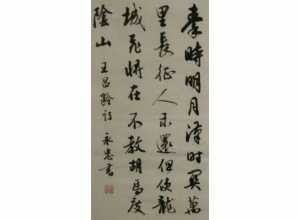 秦時明月漢時關萬
里長征人未還但使龍
城飛將在不教胡馬度
陰山 王昌齡詩 永忠書